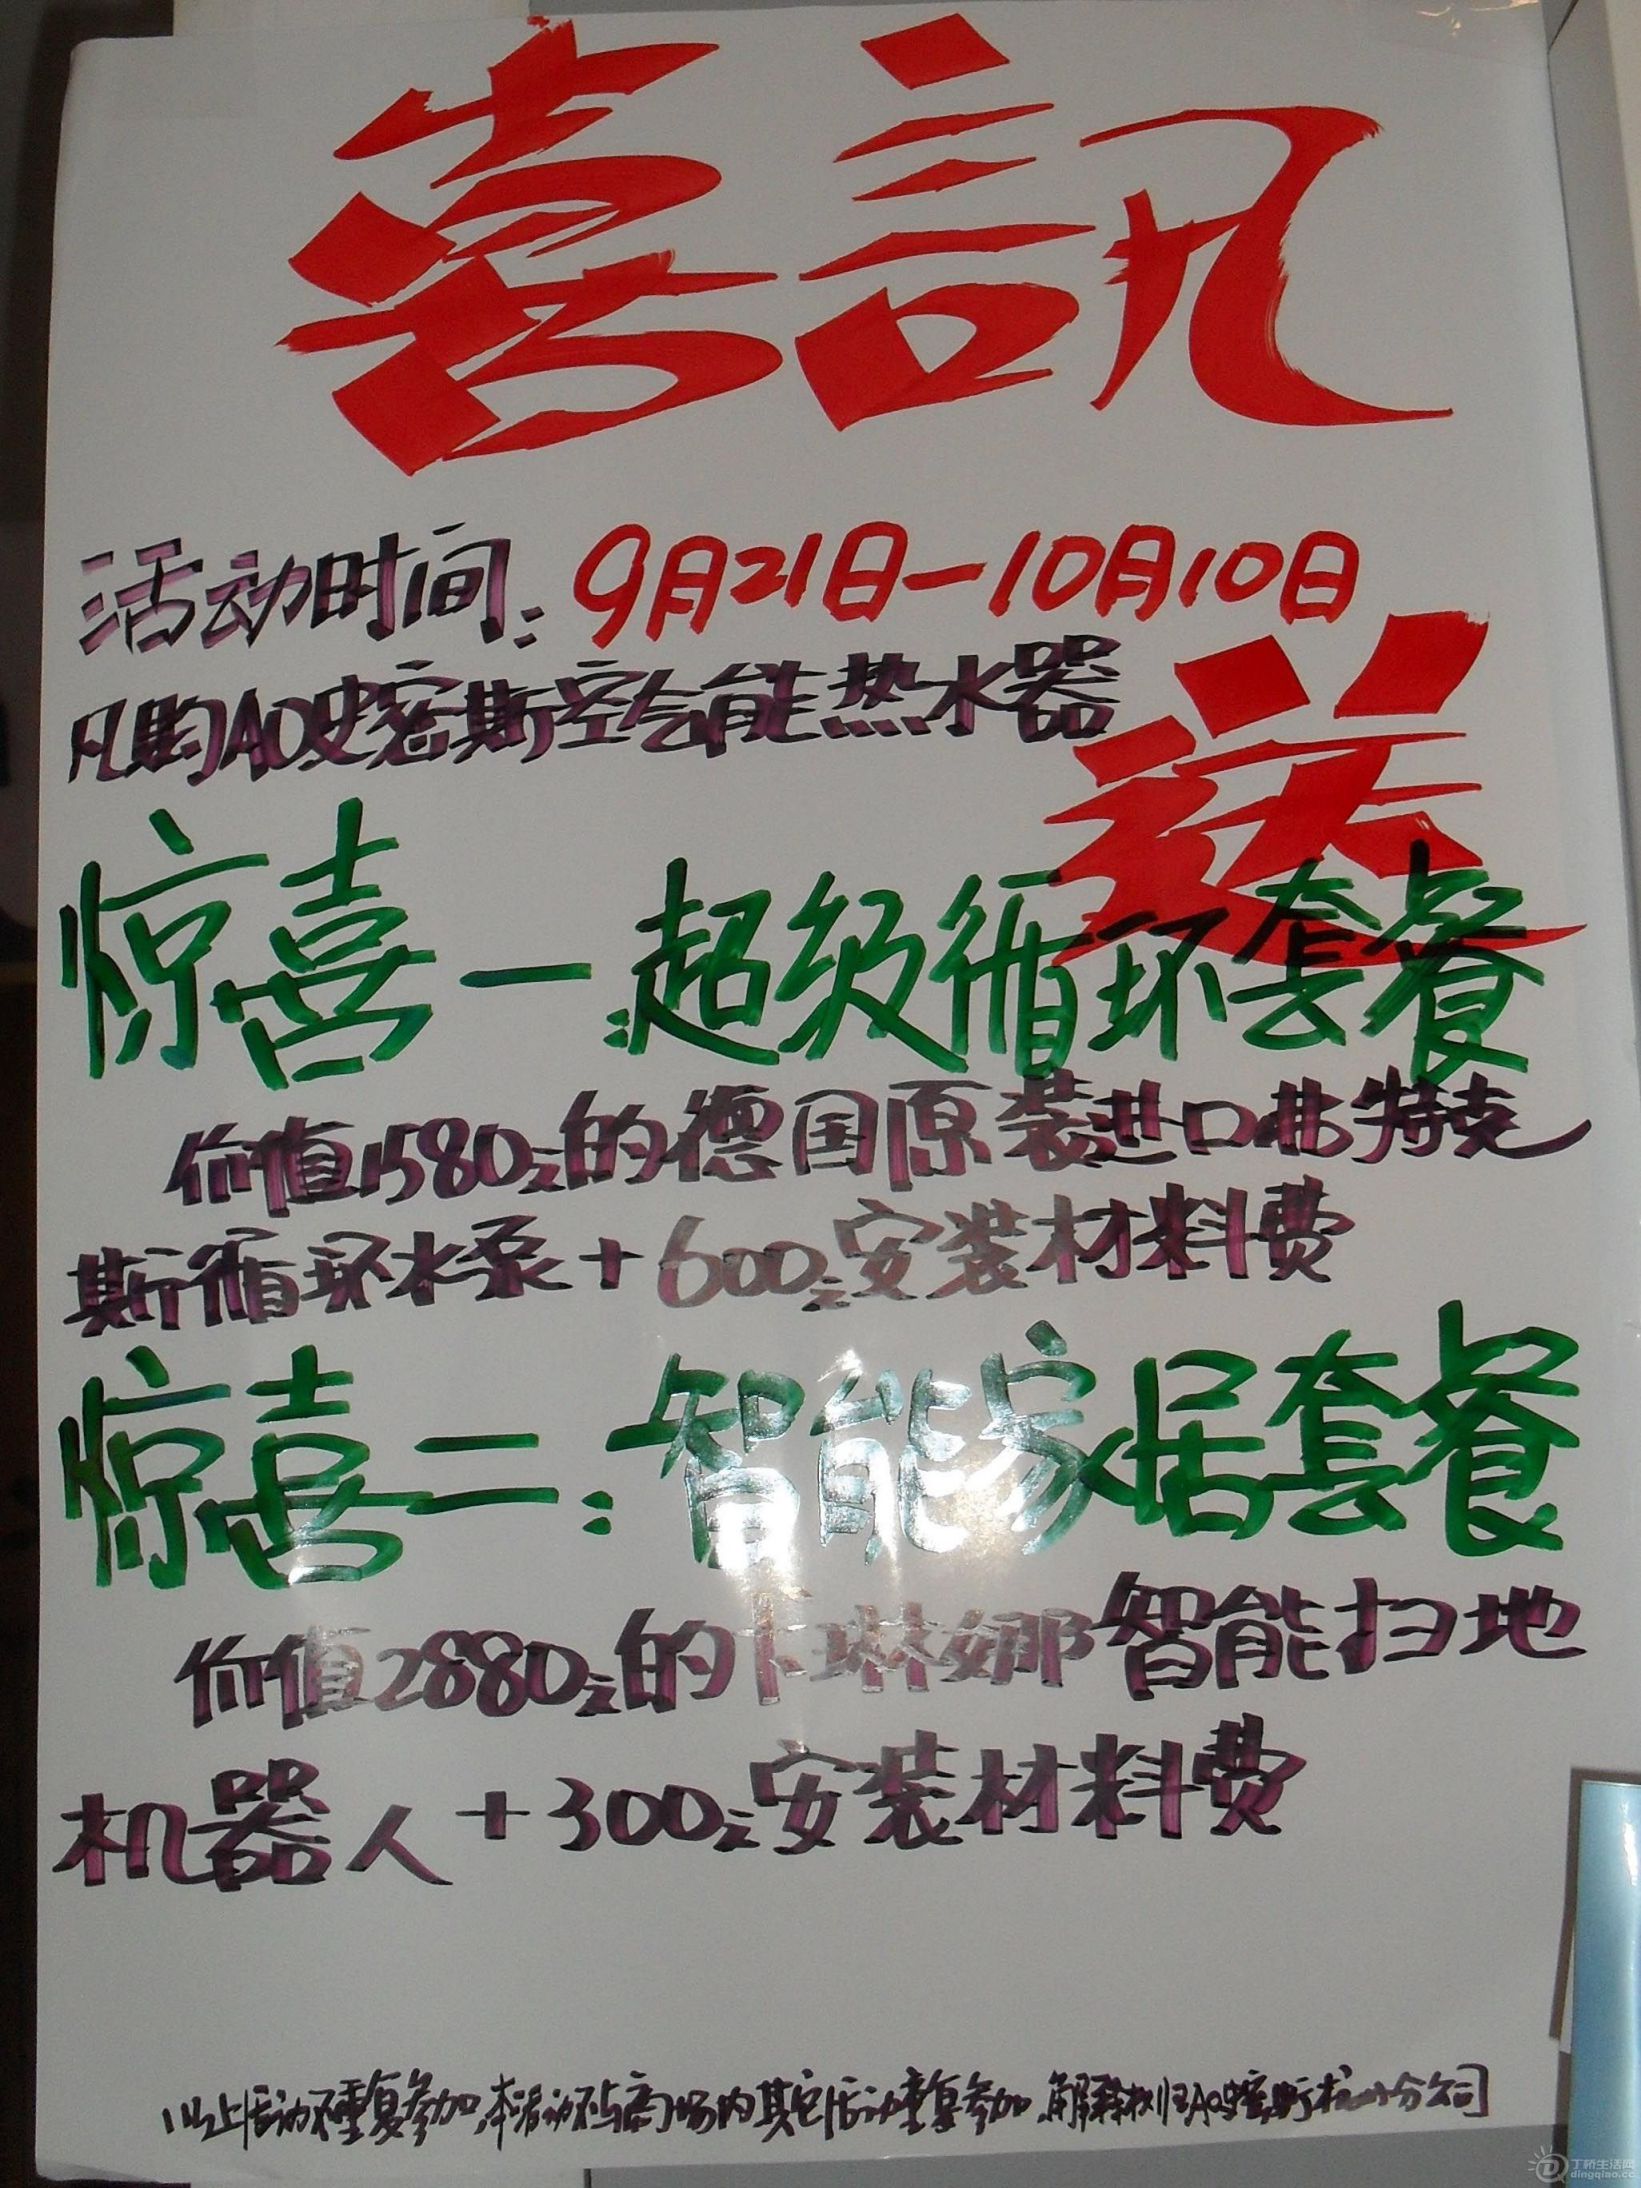 喜訊
活动时间: 9月21日—10月10日
凡购AO史密斯空气能热水器
送
惊喜一:超级循环套餐
价值1580元的德国原装进口弗特克
斯循环水泵+600元安装材料费
惊喜二:智能家居套餐
价值2880元的卡琳娜智能扫地
机器人+300元安装材料费
以上活动不重复参加,本活动不与商场内其它活动重复参加.解释权归AO史密斯杭州分公司
丁桥生活网
dingqiao.cc